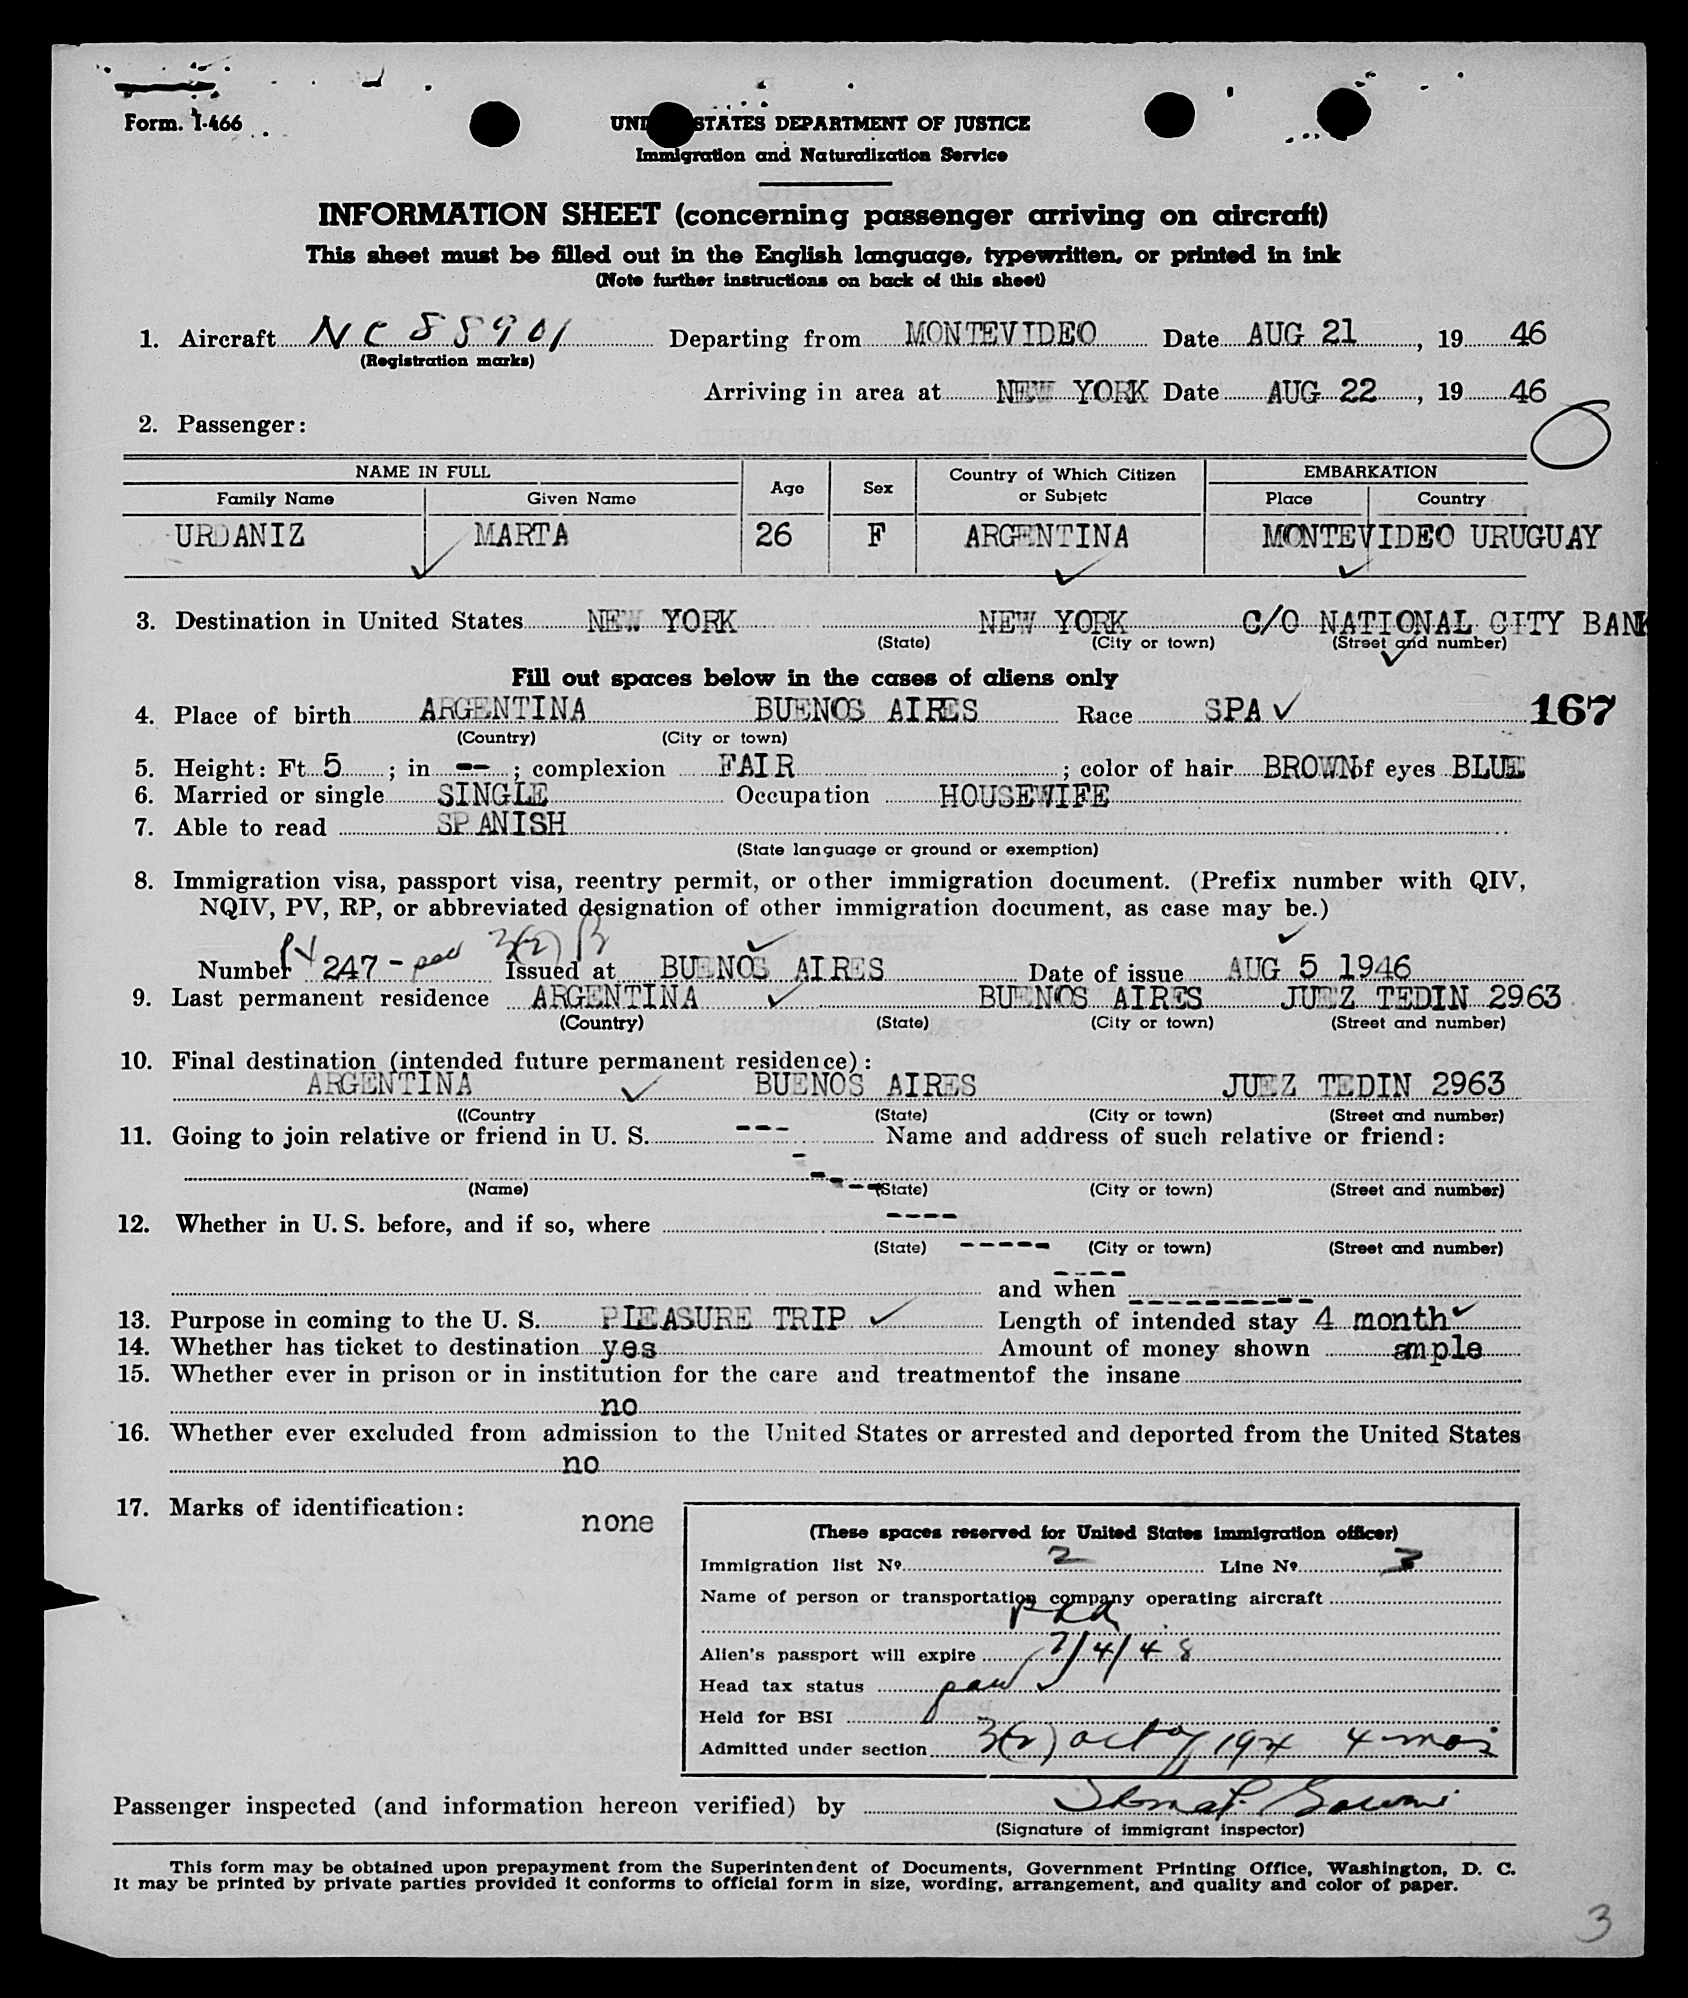 Form. I-466
UNITED STATES DEPARTMENT OF JUSTICE
Immigration and Naturalization Service
INFORMATION SHEET (concerning passenger arriving on aircraft)
This sheet must be filled out in the English language, typewritten, or printed in ink
(Note further instructions on back of this sheet)
1. Aircraft NC 88901 Departing from MONTEVIDEO Date AUG 21, 19 46
(Registration marks)
Arriving in area at NEW YORK Date AUG 22, 19 46
2. Passenger:
NAME IN FULL Age Sex Country of Which Citizen or Subjetc EMBARKATION
Family Name Given Name Place Country
URDANIZ MARTA 26 F ARGENTINA MONTEVIDEO URUGUAY
3. Destination in United States NEW YORK NEW YORK C/O NATIONAL CITY BANK
(State) (City or town) (Street and number)
Fill out spaces below in the cases of aliens only
4. Place of birth ARGENTINA BUENOS AIRES Race SPA 167
(Country) (City or town)
5. Height: Ft 5 ; in -- ; complexion FAIR ; color of hair BROWN of eyes BLUE
6. Married or single SINGLE Occupation HOUSEWIFE
7. Able to read SPANISH
(State language or ground or exemption)
8. Immigration visa, passport visa, reentry permit, or other immigration document. (Prefix number with QIV,
NQIV, PV, RP, or abbreviated designation of other immigration document, as case may be.)
Number PV 247 - 3(2) Issued at BUENOS AIRES Date of issue AUG 5 1946
9. Last permanent residence ARGENTINA BUENOS AIRES JUEZ TEDIN 2963
(Country) (State) (City or town) (Street and number)
10. Final destination (intended future permanent residence):
ARGENTINA BUENOS AIRES JUEZ TEDIN 2963
((Country (State) (City or town) (Street and number)
11. Going to join relative or friend in U. S. --- Name and address of such relative or friend:
(Name) (State) (City or town) (Street and number)
12. Whether in U. S. before, and if so, where ----
(State) ----- (City or town) (Street and number)
and when
13. Purpose in coming to the U. S. PLEASURE TRIP Length of intended stay 4 month
14. Whether has ticket to destination yes Amount of money shown ample
15. Whether ever in prison or in institution for the care and treatmentof the insane
no
16. Whether ever excluded from admission to the United States or arrested and deported from the United States
no
17. Marks of identification: none
(These spaces reserved for United States immigration officer)
Immigration list No. 2 Line No. 3
Name of person or transportation company operating aircraft
PAA
Alien's passport will expire 7/4/48
Head tax status
Held for BSI
Admitted under section 3(2) act of 1924 4 mos
Passenger inspected (and information hereon verified) by
(Signature of immigrant inspector)
This form may be obtained upon prepayment from the Superintendent of Documents, Government Printing Office, Washington, D. C.
It may be printed by private parties provided it conforms to official form in size, wording, arrangement, and quality and color of paper.
3